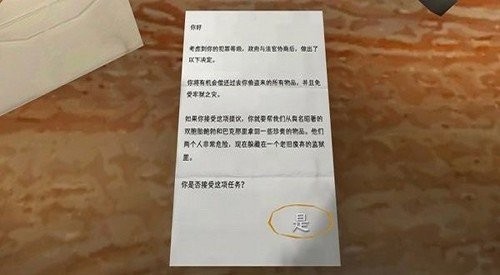 你好
考虑到你的犯罪等级，政府与法官协商后，做出了
以下决定。
你将有机会偿还过去你偷盗来的所有物品，并且免
受牢狱之灾。
如果你接受这项提议，你就要帮我们从臭名昭著的
双胞胎鲍勃和巴克那里拿到一些珍贵的物品。他们
两个人非常危险，现在躲藏在一个老旧废弃的监狱
里。
你是否接受这项任务？
是